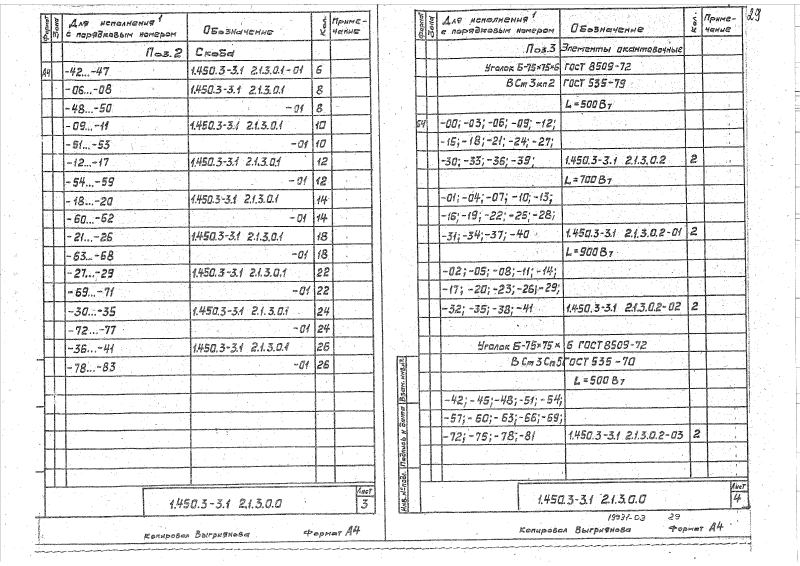 Формат Зона Для исполнения¹ с порядковым номером Обозначение Кол. Приме-чание
Поз.2 Скоба
А4 -42...-47 1.450.3-3.1 2.1.3.0.1-01 6
-06...-08 1.450.3-3.1 2.1.3.0.1 8
-48...-50 -01 8
-09...-11 1.450.3-3.1 2.1.3.0.1 10
-51...-53 -01 10
-12...-17 1.450.3-3.1 2.1.3.0.1 12
-54...-59 -01 12
-18...-20 1.450.3-3.1 2.1.3.0.1 14
-60...-62 -01 14
-21...-26 1.450.3-3.1 2.1.3.0.1 18
-63...-68 -01 18
-27...-29 1.450.3-3.1 2.1.3.0.1 22
-69...-71 -01 22
-30...-35 1.450.3-3.1 2.1.3.0.1 24
-72...-77 -01 24
-36...-41 1.450.3-3.1 2.1.3.0.1 26
-78...-83 -01 26
1.450.3-3.1 2.1.3.0.0 Лист 3
Копировал Выгриянова Формат А4
29
Формат Зона Для исполнения¹ с порядковым номером Обозначение Кол. Приме-чание
Поз.3 Элементы окантовочные
Уголок Б-75×75×6 ГОСТ 8509-72
ВСт3кп2 ГОСТ 535-79
L=500 Вт
Б4 -00; -03; -06; -09; -12;
-15; -18; -21; -24; -27;
-30; -33; -36; -39; 1.450.3-3.1 2.1.3.0.2 2
L=700 Вт
-01; -04; -07; -10; -13;
-16; -19; -22; -25; -28;
-31; -34; -37; -40 1.450.3-3.1 2.1.3.0.2-01 2
L=900 Вт
-02; -05; -08; -11; -14;
-17; -20; -23; -26; -29;
-32; -35; -38; -41 1.450.3-3.1 2.1.3.0.2-02 2
Уголок Б-75×75×6 ГОСТ 8509-72
ВСт3Сп5 ГОСТ 535-70
L=500 Вт
-42; -45; -48; -51; -54;
-57; -60; -63; -66; -69;
-72; -75; -78; -81 1.450.3-3.1 2.1.3.0.2-03 2
Инв.№подл. Подпись и дата Взам.инв.№
1.450.3-3.1 2.1.3.0.0 Лист 4
19931-03 29
Копировал Выгриянова Формат А4